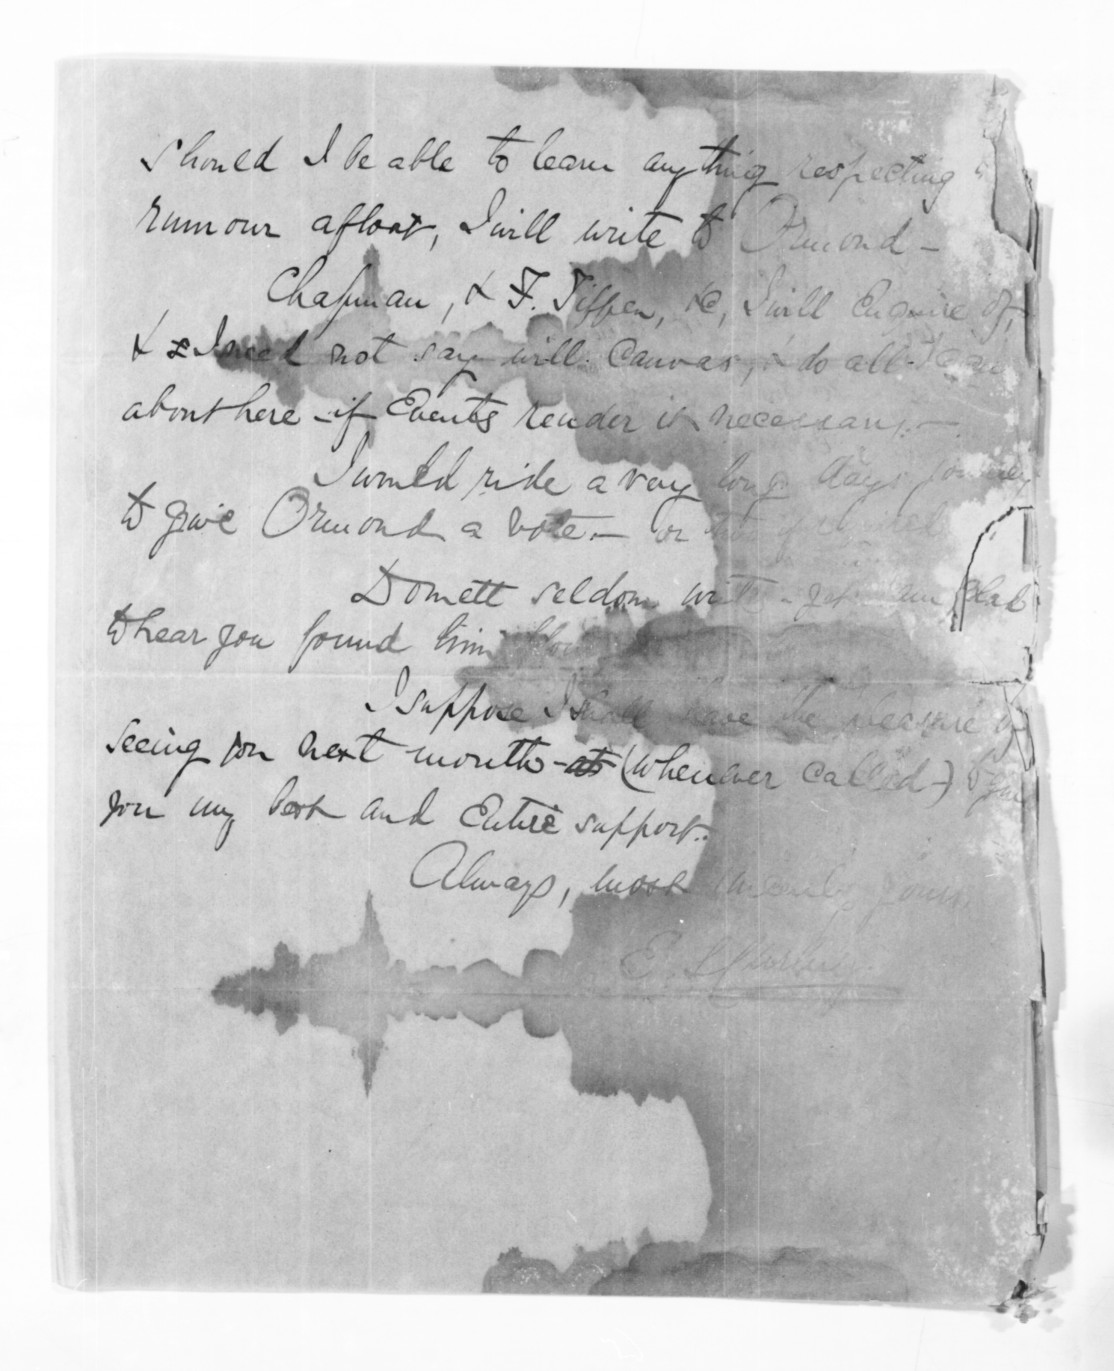 should I be able to learn anything respecting
rumour afloat, I will write to Ormond —
Chapman, & F. Tiffen, &c, I will Enquire of,
& I need not say will Canvas, & do all I can
about here — if Events render it necessary. —
I would ride a very long days journey
to give Ormond a vote. — or two
Domett seldom writes - yet I am glad
to hear you found him
I suppose I shall have the pleasure of
seeing you next month - at (whenever called -) to give
you my best and Entire support.
Always, most sincerely yours.
E.